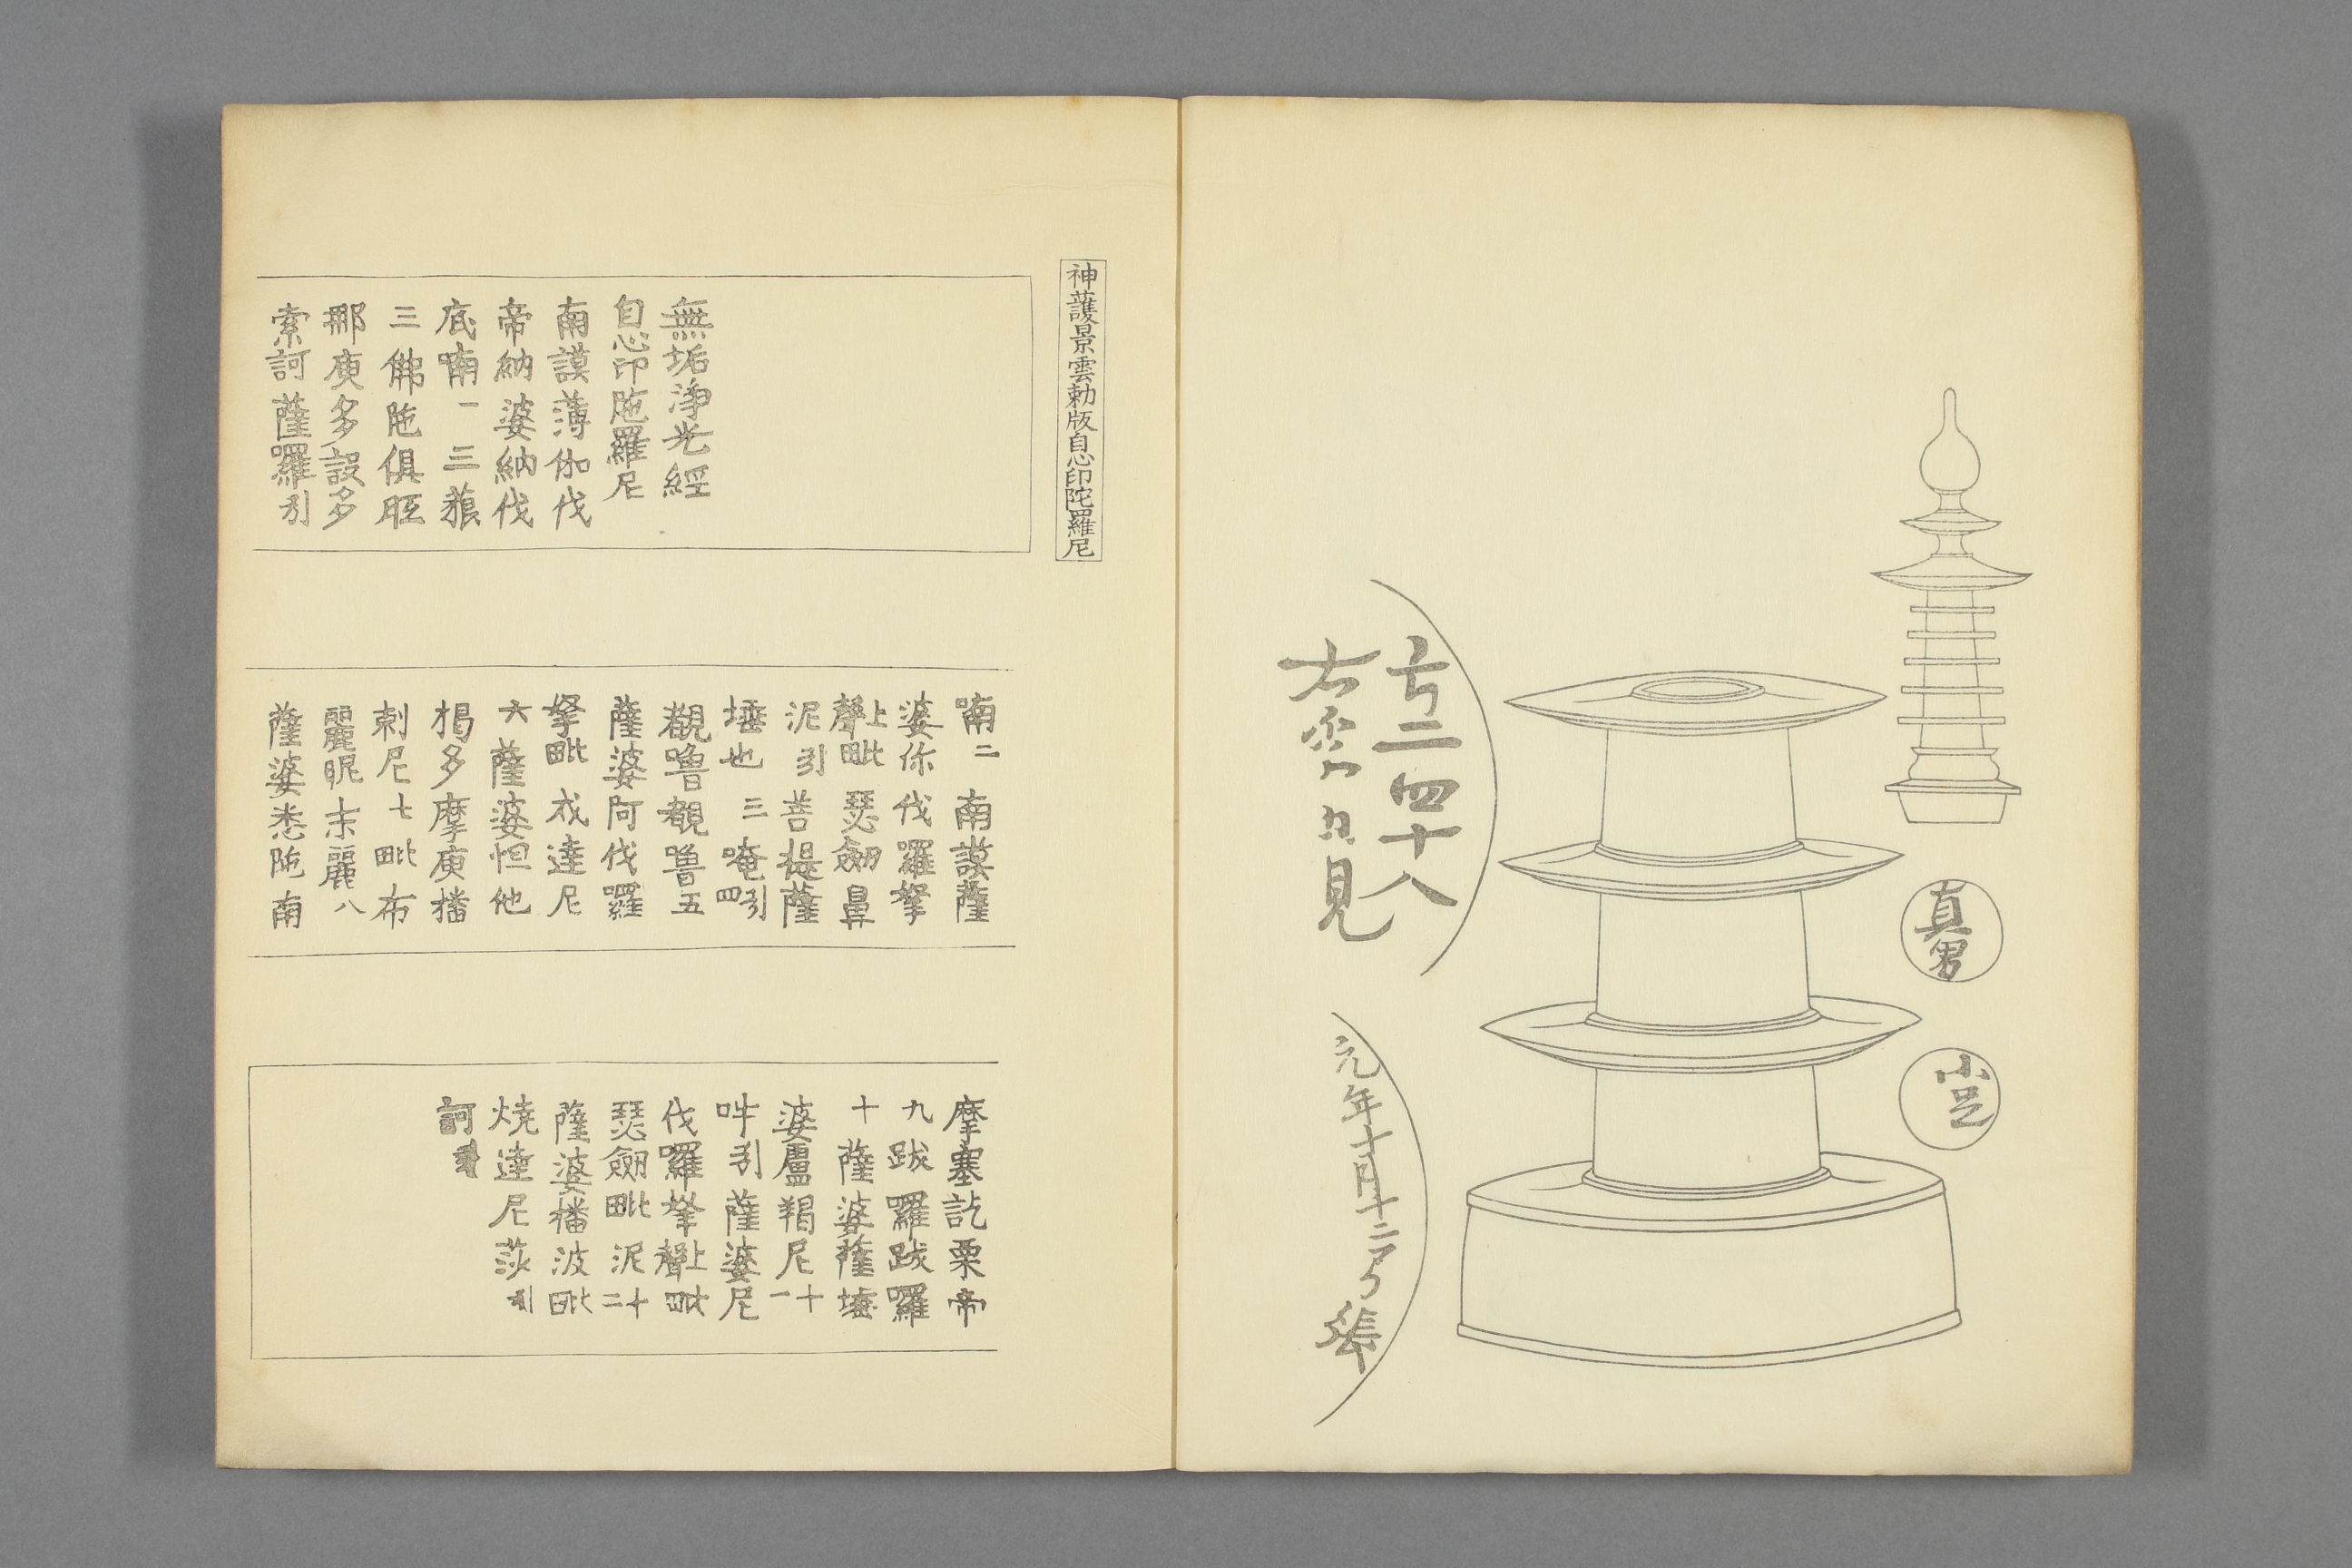 真男
小足
云二四十八
右
月見
元年十月十二
神護景雲勅版自心印陀羅尼
無垢淨光經
自心印陁羅尼
南謨薄伽伐
帝納婆納伐
底喃一三藐
三佛陁俱胝
那庾多設多
索訶薩羅引
喃二南謨薩
婆你伐羅拏
聲上毗瑟劔鼻
泥引菩提薩
埵也三唵引四
覩嚕覩嚕五
薩婆阿伐囉
拏毗戍達尼
六薩婆怛他
揭多摩庾播
剌尼七毗布
麗昵末麗八
薩婆悉陁南
摩塞訖栗帝
九跋囉跋囉
十薩婆薩埵
婆盧羯尼十一
吽引薩婆尼
伐囉拏上聲毗
瑟劔毗泥十二
薩婆播波毗
燒達尼莎引
訶引